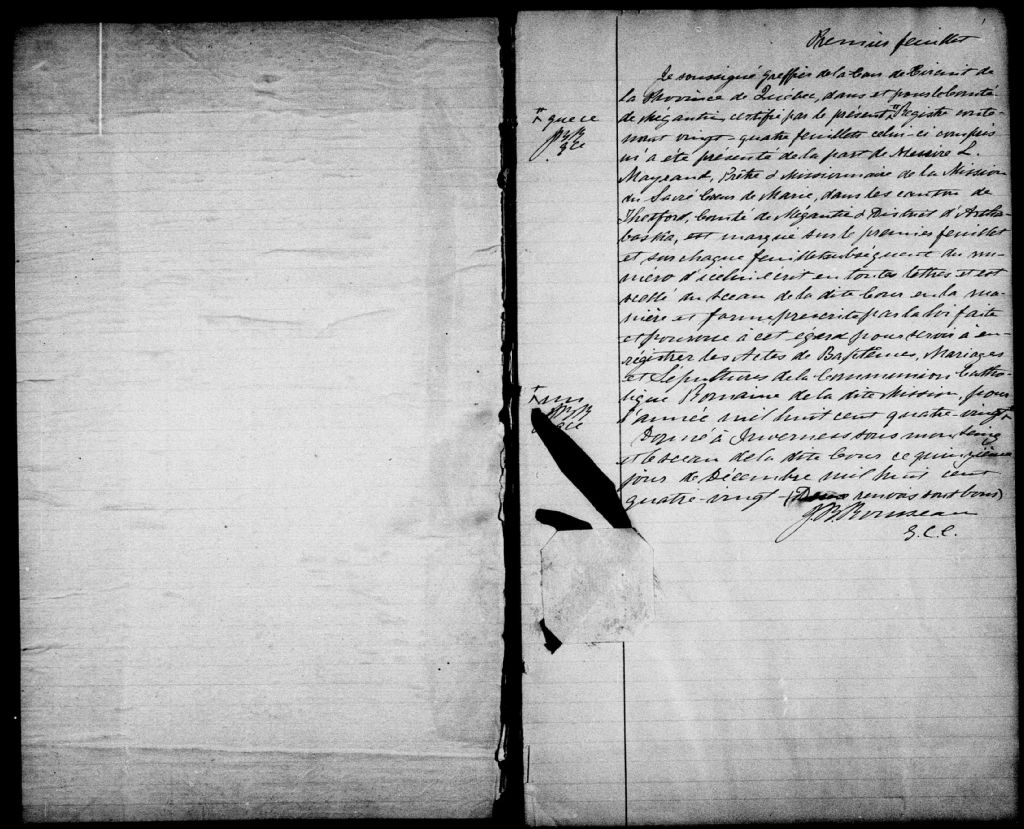 Premier feuillet
Je soussigné Greffier de la Cour de Circuit de
la Province de Québec, dans et pour le Comté
de Mégantic, certifie par le présent, Registre conte-
nant vingt-quatre feuillets celui-ci compris
m'a été présenté de la part de Messire L.
Mayrand, Prêtre & Missionnaire de la Mission
du Sacré Cœur de Marie, dans les canton de
Thetford, Comté de Mégantic & District d'Artha-
baska, est marqué sur le premier feuillet
et sur chaque feuillet subséquent du nu-
méro d'icelui écrit en toutes lettres et est
scellé du sceau de la dite Cour en la ma-
nière et forme prescrite par la loi faite
et pourvue à cet égard pour servir à en-
régistrer les Actes de Baptêmes, Mariages
et Sépultures de la Communion Catho-
lique Romaine de la dite Mission, pour
l'année mil huit cent quatre-vingt
Donné à Inverness sous mon seing
et le sceau de la dite Cour ce quinzième
jour de Décembre mil huit cent
quatre-vingt (Deux renvois sont bons)
J B Rousseau
G. C. C.
que ce
JBR
GCC
un
JBR
GCC